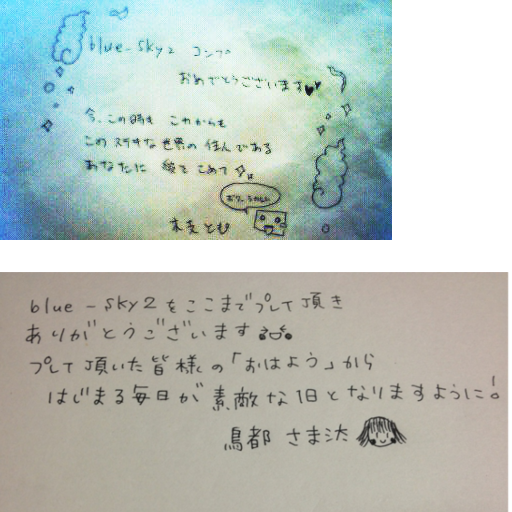 blue-sky2 コンプ
おめでとうございます♥♥
今、この時も これからも
この ステキな 世界の 住んである
あなたに 愛を こめて
ボク、うれしい
末支 とむ
blue-sky2をここまでプレイ頂き
ありがとうございます
プレイ頂いた皆様の「おはよう」から
はじまる毎日が素敵な1日となりますように!
鳥都 さま汰